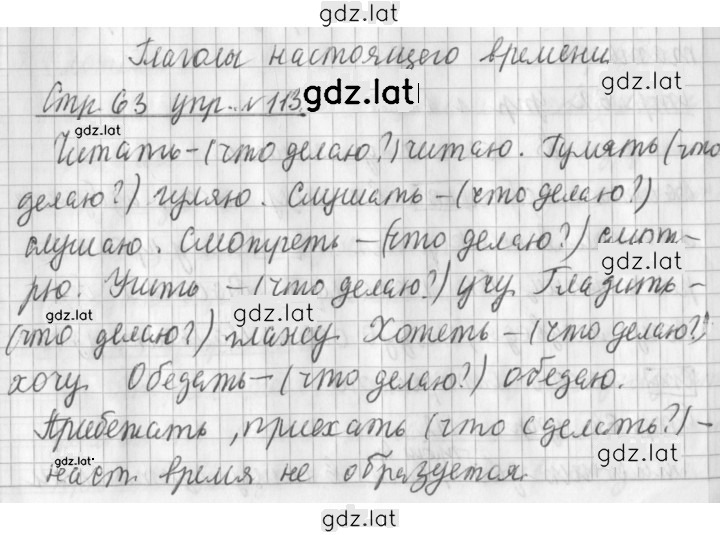 gdz.lat
Глаголы настоящего времени
gdz.lat
Стр. 63 упр. №113.
gdz.lat
gdz.lat
Читать – (что делаю?) читаю. Гулять (что
делаю?) гуляю. Слушать – (что делаю?)
gdz.lat
слушаю. Смотреть – (что делаю?) смот-
gdz.lat
рю. Учить – (что делаю?) учу Гладить –
gdz.lat
gdz.lat
(что делаю?) глажу Хотеть – (что делаю?)
хочу. Обедать – (что делаю?) обедаю.
Прибежать, приехать (что сделать?) –
gdz.lat
gdz.lat
наст. время не образуется.
gdz.lat